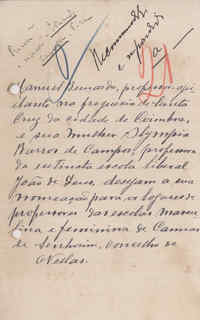 Recommendado
e respondido
Manuel Bernardo, professor aju
dante na freguezia de Santa
Cruz da cidade de Coimbra,
e sua mulher Olympia
Barros de Campos, professora
da extincta escola liberal
João de Deus, desejam a sua
nomeação para os logares de
professores das escolas mascu
lina e feminina de Cannas
de Senhorim, concelho de
Nellas.